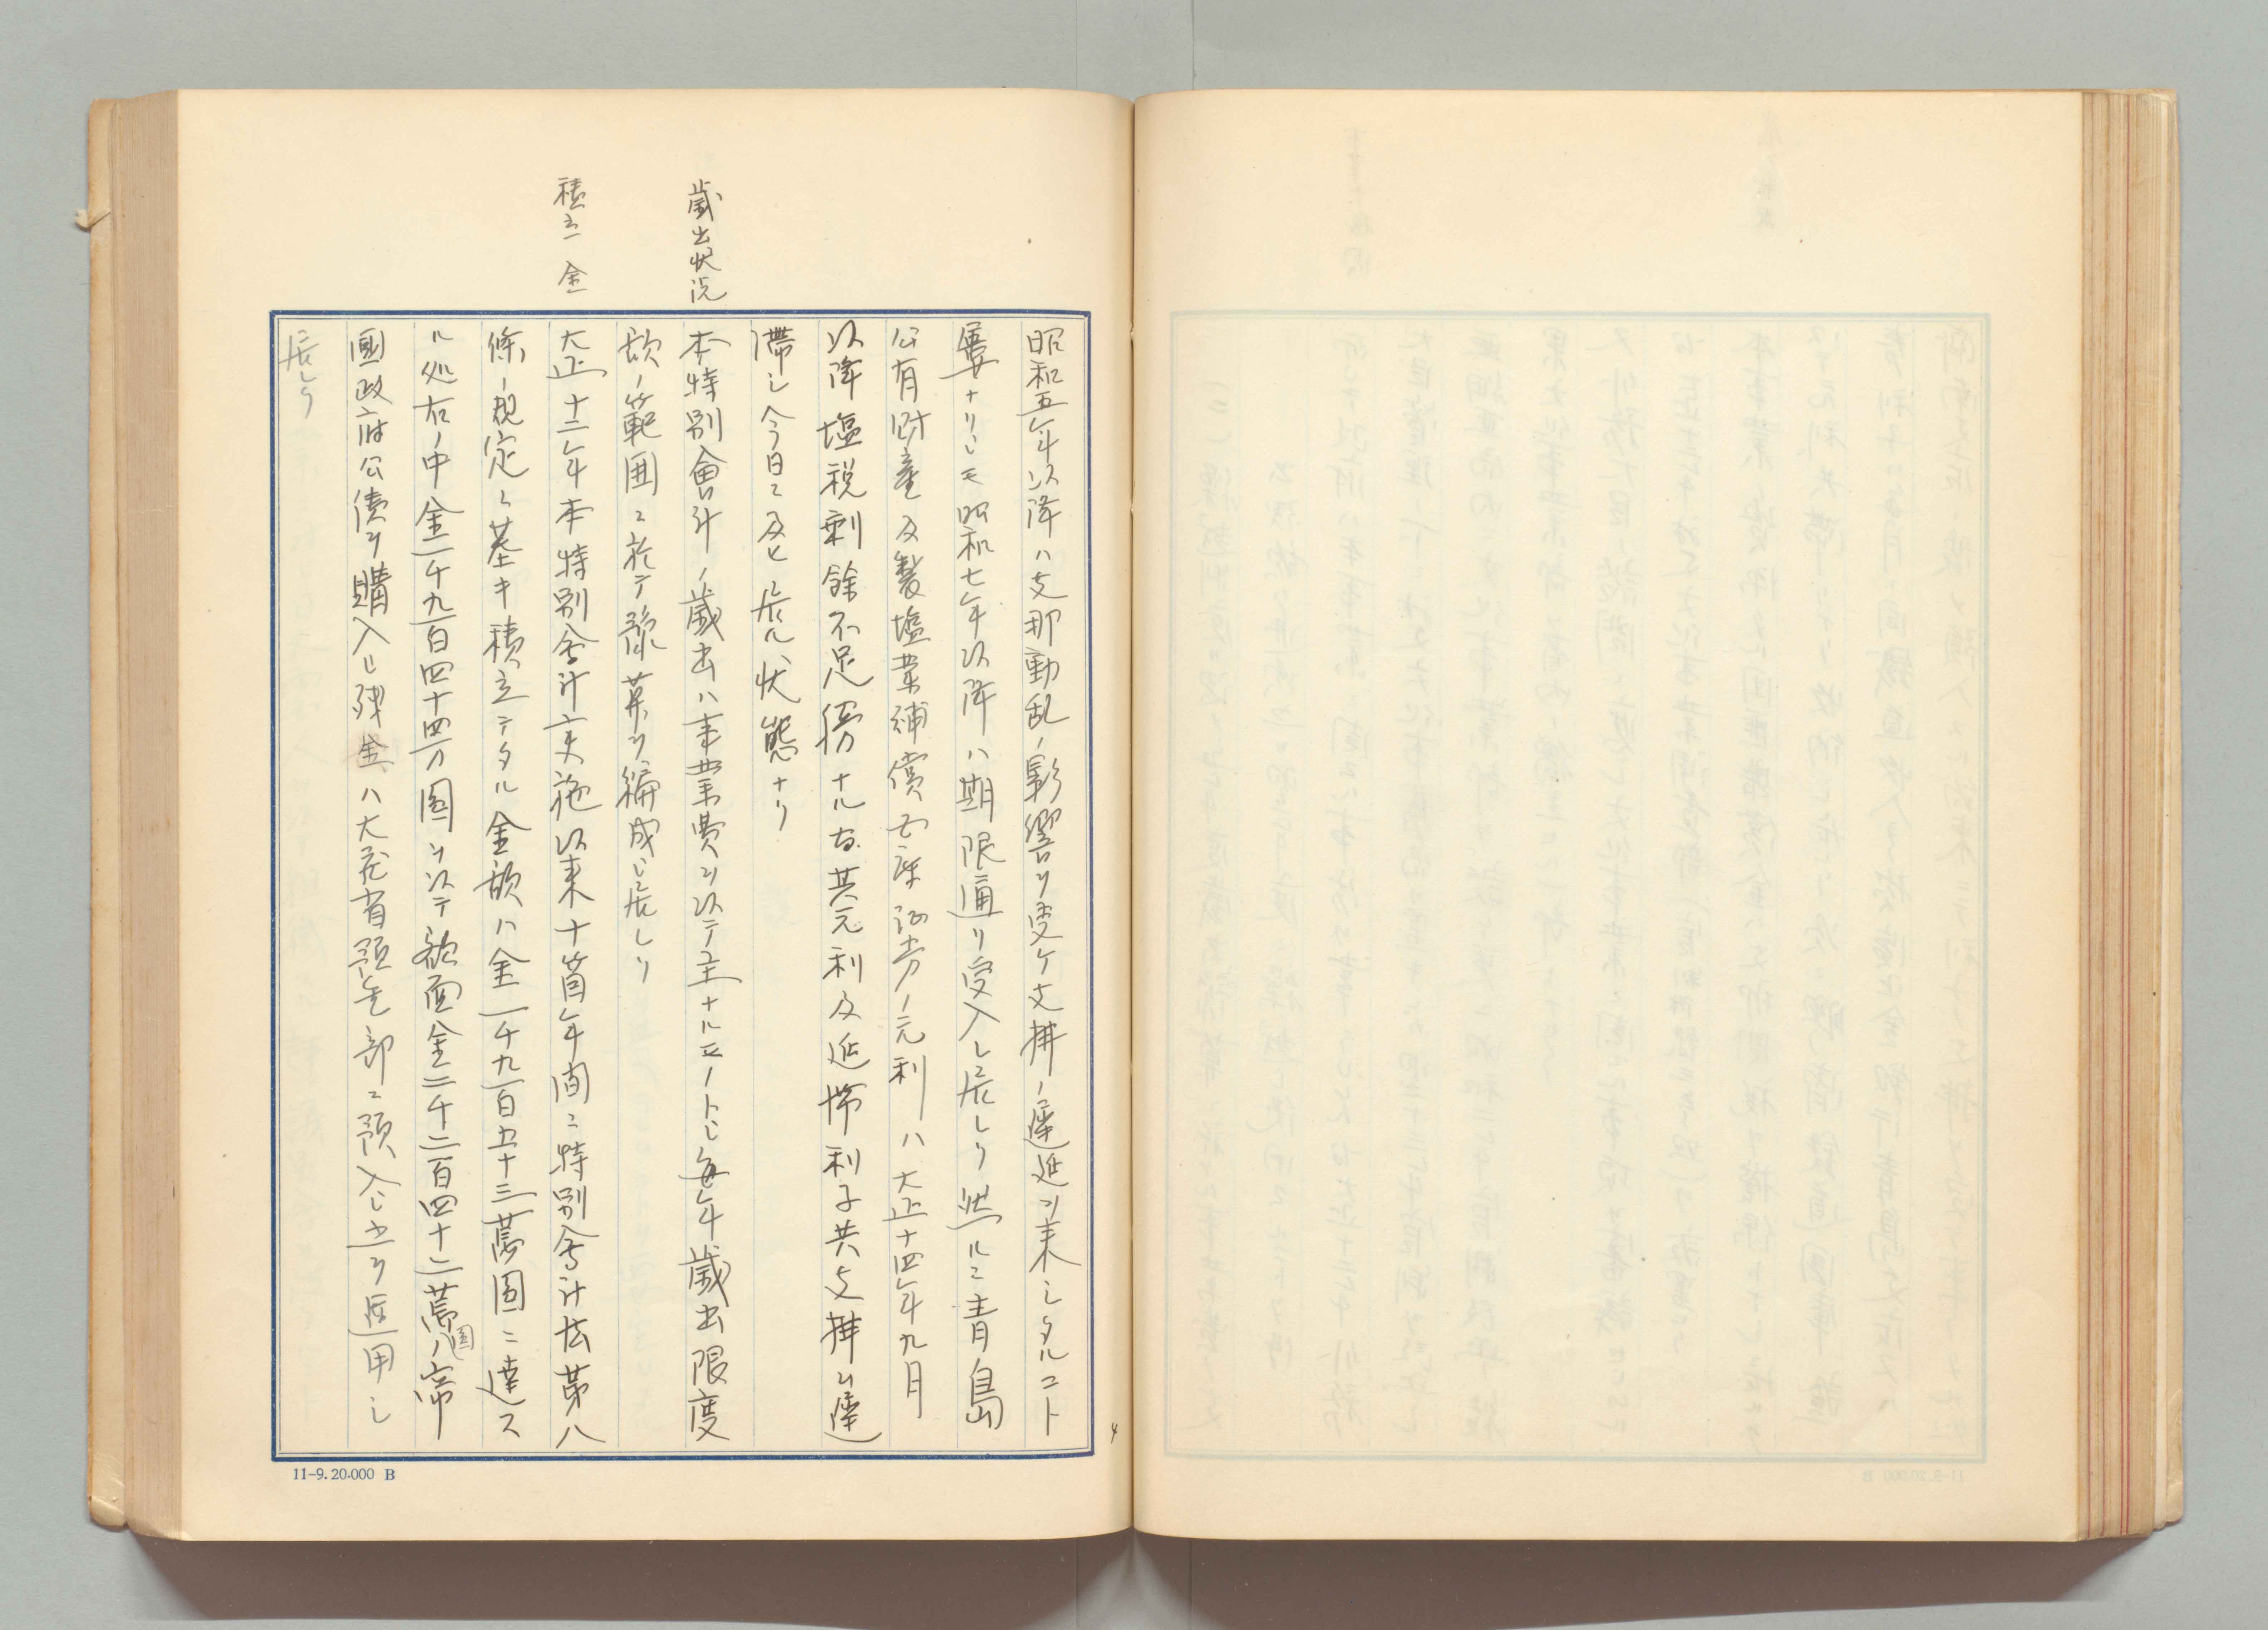 昭和五年以降ハ支那動乱ノ影響ヲ受ケ支拂ノ遅延ヲ来シタルコト
屡々ナリシモ昭和七年以降ハ期限通リ受入レ居レリ然ルニ青島
公有財産及製塩業補償国庫証券ノ元利ハ大正十四年九月
以降塩税剰餘不足勝ナル為其元利及延滞利子共支拂ヲ遅
滞シ今日ニ及ヒ居ル状態ナリ
歳出状況
本特別會計ノ歳出ハ事業費ヲ以テ主ナルモノトシ毎年歳出限度
額ノ範囲ニ於テ豫算ヲ編成シ居レリ
積立金
大正十二年本特別会計実施以来十箇年間ニ特別会計法第八
條ノ規定ニ基キ積立テタル金額ハ金一千九百五十三萬圓ニ達ス
ル処右ノ中金一千九百四十四万圓ヲ以テ額面金二千二百四十二萬圓ノ帝
國政府公債ヲ購入シ残金ハ大蔵省預金部ニ預入シ之カ運用シ
居レリ
11-9. 20.000 B